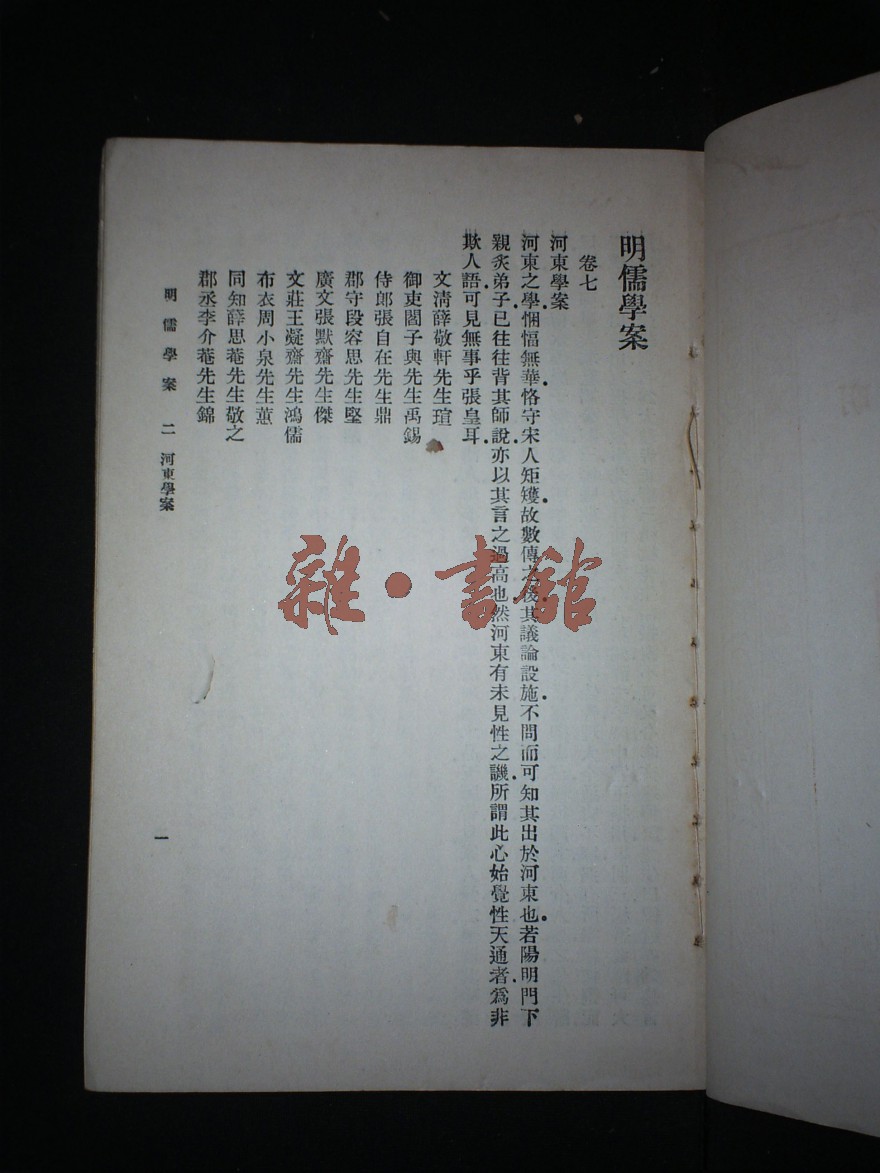 明儒學案
卷七
河東學案
河東之學悃愊無華恪守宋人矩矱故數傳之後其議論設施不問而可知其出於河東也若陽明門下
親炙弟子已往往背其師說亦以其言之過高也然河東有未見性之譏所謂此心始覺性天通者爲非
欺人語可見無事乎張皇耳
文清薛敬軒先生瑄
御史閻子與先生禹錫
侍郎張自在先生鼎
郡守段容思先生堅
廣文張默齋先生傑
文莊王凝齋先生鴻儒
布衣周小泉先生蕙
同知薛思菴先生敬之
郡丞李介菴先生錦
明儒學案 二 河東學案 一
雜·書館